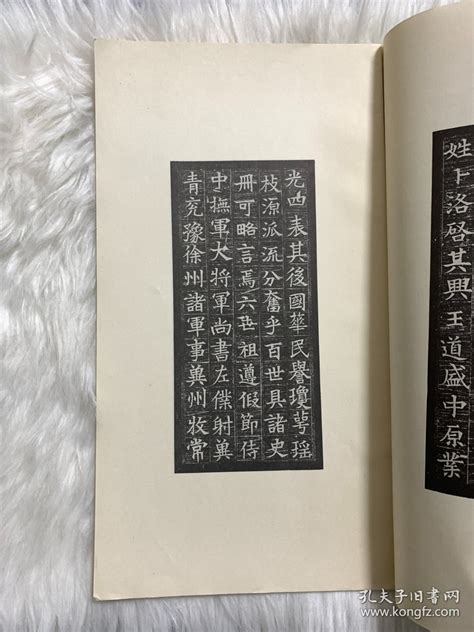 姓卜洛啓其興王道盛中原業
光四表其後國華民譽瓊萼瑶
枝源派流分奮乎百世具諸史
冊可略言焉六世祖遵假節侍
中撫軍大將軍尚書左僕射冀
青兖豫徐州諸軍事冀州牧常
孔夫子旧书网
www.kongfz.com